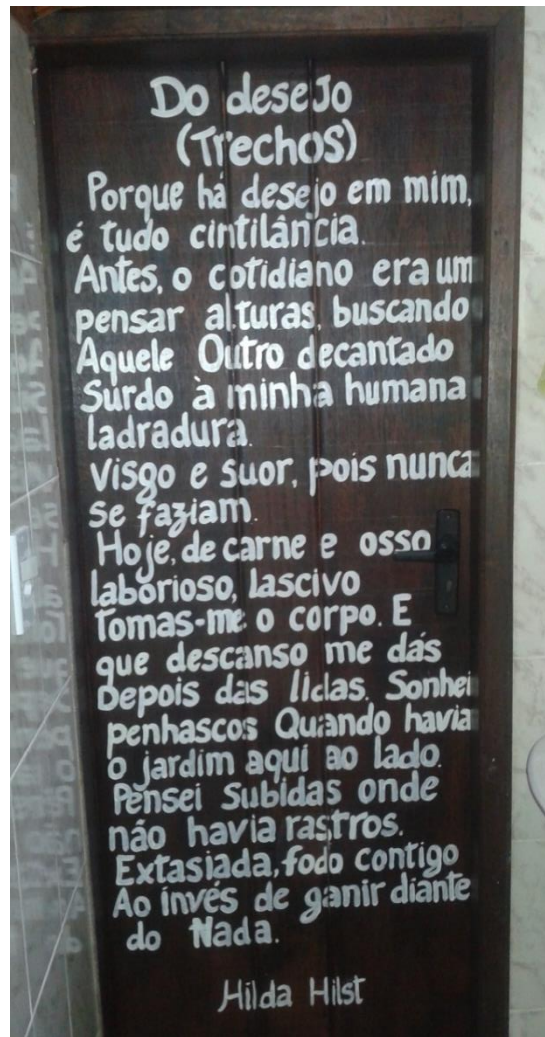 Do desejo
(Trechos)
Porque há desejo em mim,
é tudo cintilância.
Antes, o cotidiano era um
pensar alturas, buscando
Aquele Outro decantado
Surdo à minha humana
ladradura.
Visgo e suor, pois nunca
se faziam.
Hoje, de carne e osso
laborioso, lascivo
Tomas-me o corpo. E
que descanso me dás
Depois das lidas. Sonhei
penhascos Quando havia
o jardim aqui ao lado.
Pensei subidas onde
não havia rastros.
Extasiada, fodo contigo
Ao invés de ganir diante
do Nada.
Hilda Hilst